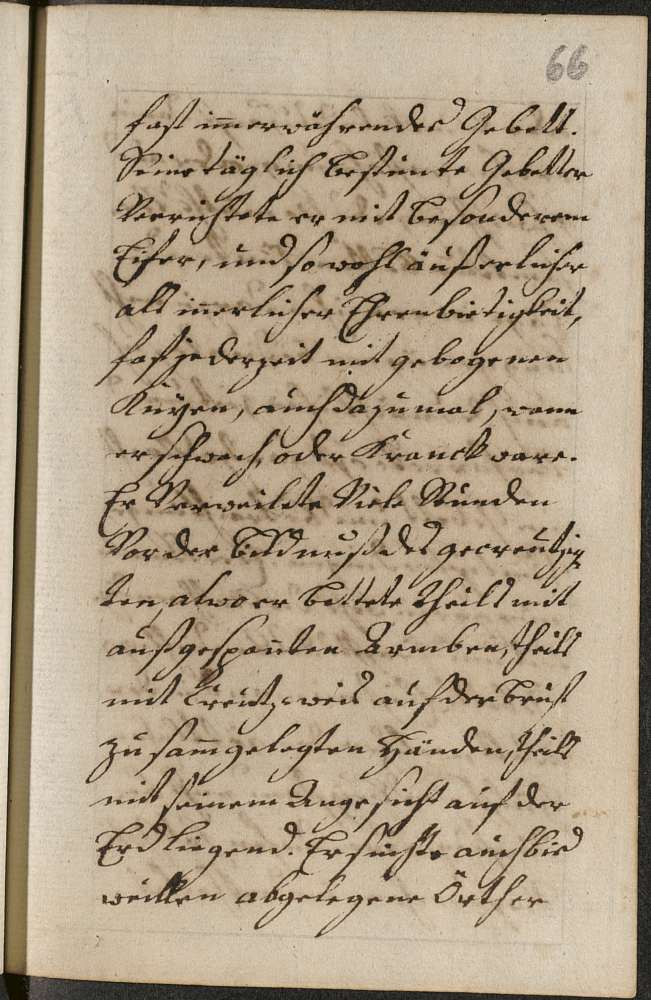 66
fast im̄erwährendes Gebett.
Seine täglich bestimte Gebetter
Verrichtete er mit besonderem
Eifer, und so wohl äußerlicher
als in̄erlicher Ehrenbietigkeit,
fast jederzeit mit gebogenen
Knÿen, auch dazumal, wann
er schwach, oder Kranck ware.
Er Verweilete Viele Stunden
Vor der bildnuß des gecreutzig
ten, alwo er bettete theils mit
außgespan̄ten Armben, theils
mit Creutz-weis auf der brust
zusam̄gelegten Händen, theils
mit seinem Angesicht auf der
Erd liegend. Er suchte auch bis
weillen abgelegene Örther